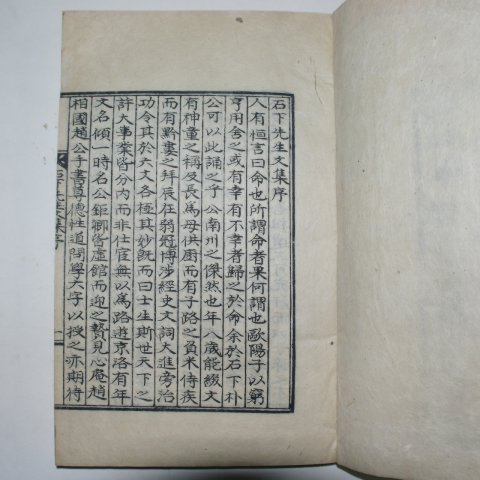 石下先生文集序
人有恒言曰命也所謂命者果何謂也歐陽子以窮
亨用舍之或有幸有不幸者歸之於命余於石下朴
公可以此誦之乎公南州之傑然也年八歲能綴文
有神童之稱及長爲母供廚而有子路之負米侍疾
而有黔婁之拜辰在弱冠博涉經史文詞大進旁治
功令其於六文各極其妙旣而曰士生斯世天下之
許大事業皆分內而非仕宦無以爲路遊京洛有年
文名傾一時名公鉅卿皆虛館而迎之贄見心庵趙
相國趙公手書尊德性道問學六字以授之亦期待
石下先生文集序
一